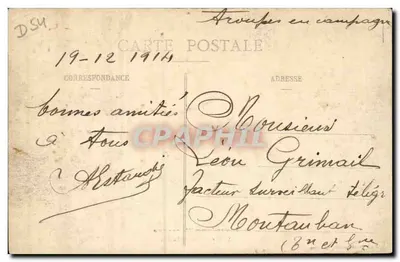 D54
Troupes en campagne
CARTE POSTALE
19-12 1914
CORRESPONDANCE
ADRESSE
bonnes amitiés
à tous
Monsieur
Léon Grimail
facteur surveillant télég
Montauban
(Tn et Gne
CPAPHIL.COM